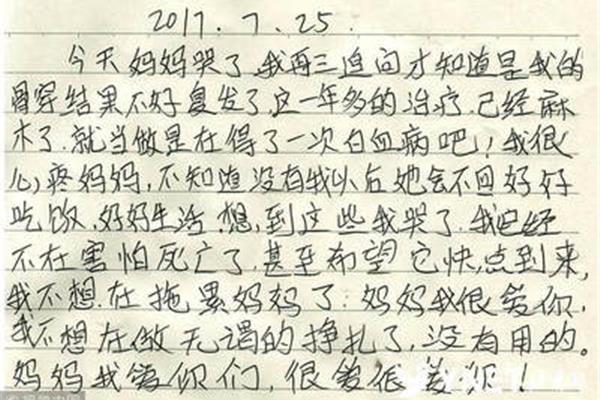 2017.7.25.
今天妈妈哭了,我再三追问才知道是我的
骨穿结果不好复发了这一年多的治疗.已经麻
木了.就当做是在得了一次白血病吧!我很
心疼妈妈,不知道没有我以后她会不回好好
吃饭,好好生活,想,到这些我哭了.我已经
不在害怕死亡了.甚至希望它快点到来,
我不想在拖累妈妈了.妈妈我很爱你.
我不想在做无谓的挣扎了,没有用的。
妈妈我爱你们,很爱很爱